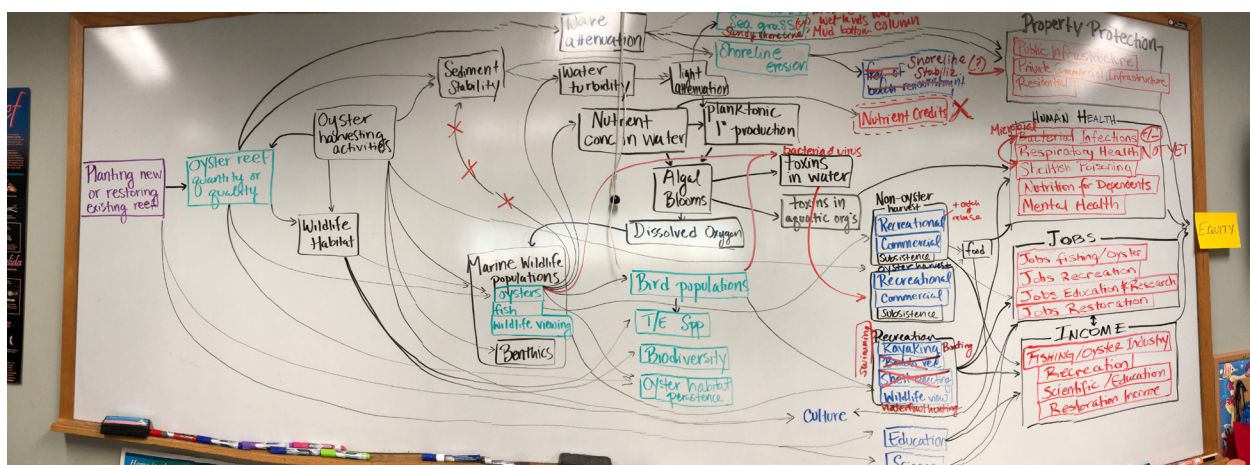 Planting new
or restoring
existing reef
Oyster reef
quantity or
quality
Oyster
harvesting
activities
Wildlife
Habitat
Sediment
Stability
Wave
attenuation
Water
turbidity
light
attenuation
Nutrient
conc in water
planktonic
1° production
Algal
Blooms
Dissolved Oxygen
bacteria & virus
toxins
in water
toxins in
aquatic org's
Sea grass
wetlands
Sandy shoreline
Mud bottom column
Shoreline
erosion
Shoreline
Stabiliz.
(?)
of
beach renourishment
Nutrient Credits
X
Marine Wildlife
populations
oysters
fish
Wildlife viewing
Benthics
Bird populations
T/E Spp
Biodiversity
Oyster habitat
persistence
Non-oyster
harvest
Recreational
Commercial
Subsistence
+ catch &
release
food
Oyster harvest
Recreational
Commercial
Subsistence
Recreation
Swimming
Kayaking
Boating
Shell collecting
Wildlife view
Waterfowl hunting
Culture
Education
Property Protection
Public Infrastructure
Private Commercial Infrastructure
Residential
HUMAN HEALTH
Microbial
Bacterial Infections
Respiratory Health
NOT YET
Shellfish Poisoning
Nutrition for Dependents
Mental Health
JOBS
Jobs fishing/Oyster
Jobs Recreation
Jobs Education & Research
Jobs Restoration
INCOME
FISHING/OYSTER INDUSTRY
Recreation
Scientific/Education
Restoration Income
EQUITY